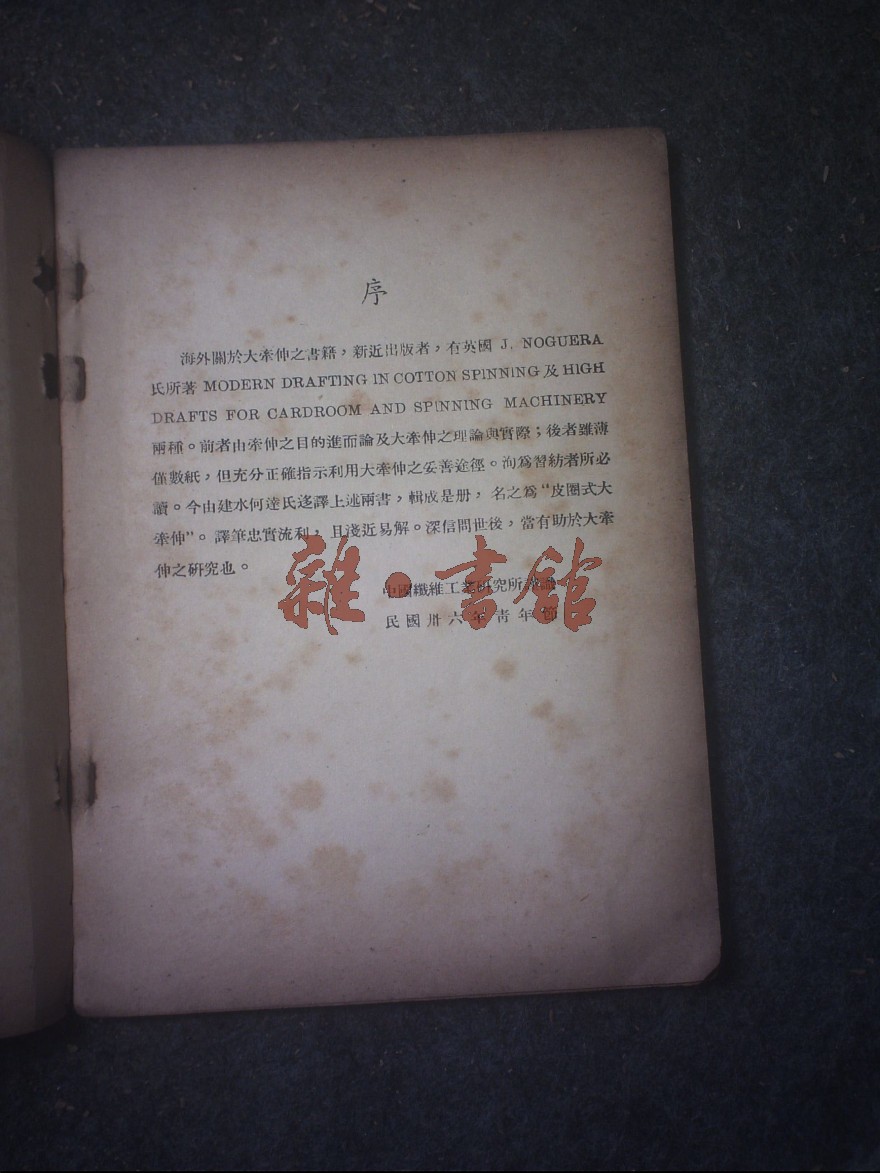 序
海外關於大牽伸之書籍，新近出版者，有英國 J. NOGUERA
氏所著 MODERN DRAFTING IN COTTON SPINNING 及 HIGH
DRAFTS FOR CARDROOM AND SPINNING MACHINERY
兩種。前者由牽伸之目的進而論及大牽伸之理論與實際；後者雖薄
僅數紙，但充分正確指示利用大牽伸之妥善途徑。洵為習紡者所必
讀。今由建水何達氏迻譯上述兩書，輯成是册，名之為"皮圈式大
牽伸"。譯筆忠實流利，且淺近易解。深信問世後，當有助於大牽
伸之研究也。
中國纖維工業研究所
民國卅六年青年節
雜·書館